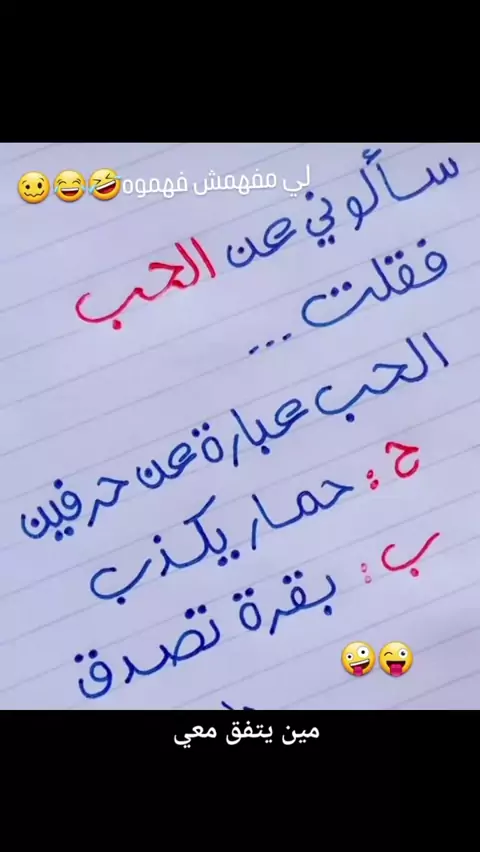 لي مفهمش فهموه🤣😂🥴
سألوني عن الحب
فقلت ...
الحب عبارة عن حرفين
ح : حمار يكذب
ب : بقرة تصدق
🤪😜
مين يتفق معي